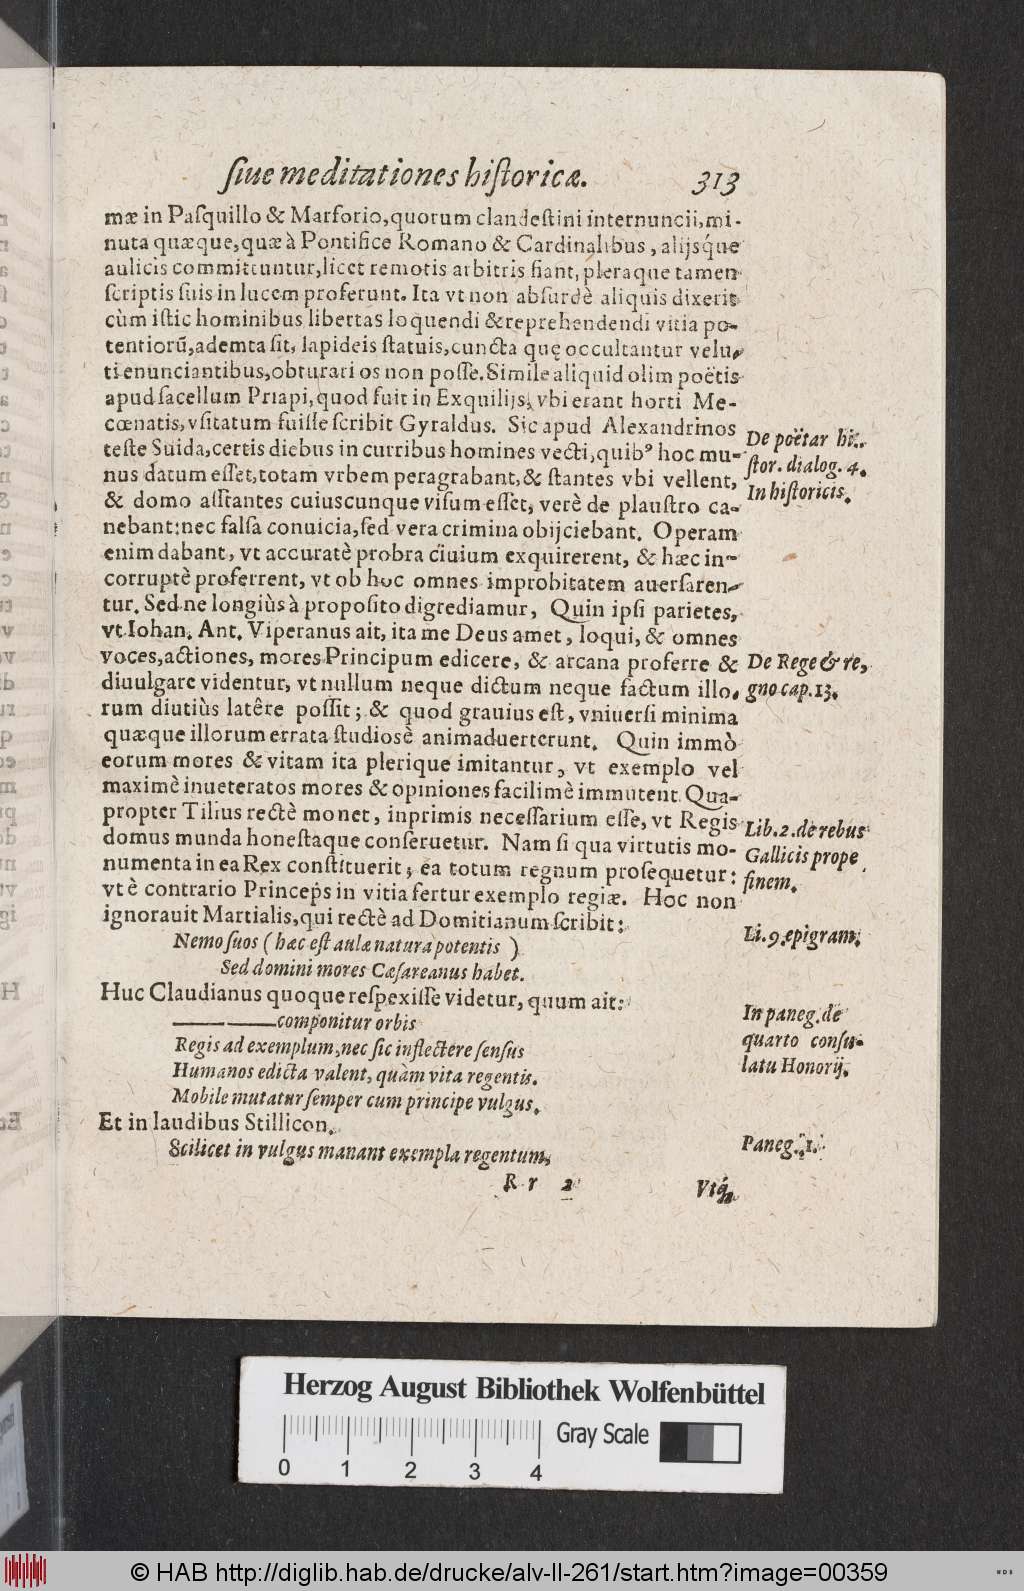 ſiue meditationes hiſtoricæ. 313
mæ in Paſquillo & Marforio, quorum clandeſtini internuncii, mi-
nuta quæque, quæ à Pontifice Romano & Cardinalibus, alijsq́ue
aulicis committuntur, licet remotis arbitris fiant, pleraque tamen
ſcriptis ſuis in lucem proferunt. Ita vt non abſurdè aliquis dixerit
cùm iſtic hominibus libertas loquendi & reprehendendi vitia po-
tentiorũ, ademta ſit, lapideis ſtatuis, cuncta quę occultantur velu-
ti enunciantibus, obturari os non poſſe. Simile aliquid olim poëtis
apud ſacellum Priapi, quod fuit in Exquilijs, vbi erant horti Me-
cœnatis, vſitatum fuiſſe ſcribit Gyraldus. Sic apud Alexandrinos
teſte Suida, certis diebus in curribus homines vecti, quibꝰ hoc mu-
nus datum eſſet, totam vrbem peragrabant, & ſtantes vbi vellent,
& domo aſſtantes cuiuscunque viſum eſſet, verè de plauſtro ca-
nebant: nec falſa conuicia, ſed vera crimina obijciebant. Operam
enim dabant, vt accuratè probra ciuium exquirerent, & hæc in-
corruptè proferrent, vt ob hoc omnes improbitatem auerſaren-
tur. Sed ne longiùs à propoſito digrediamur, Quin ipſi parietes,
vt Iohan. Ant. Viperanus ait, ita me Deus amet, loqui, & omnes
voces, actiones, mores Principum edicere, & arcana proferre &
diuulgare videntur, vt nullum neque dictum neque factum illo-
rum diutiùs latêre poſſit; & quod grauius eſt, vniuerſi minima
quæque illorum errata ſtudiosè animaduerterunt. Quin immò
eorum mores & vitam ita plerique imitantur, vt exemplo vel
maximè inueteratos mores & opiniones facilimè immutent. Qua-
propter Tilius rectè monet, inprimis neceſſarium eſſe, vt Regis
domus munda honeſtaque conſeruetur. Nam ſi qua virtutis mo-
numenta in ea Rex conſtituerit, ea totum regnum proſequetur:
vt è contrario Princeps in vitia fertur exemplo regiæ. Hoc non
ignorauit Martialis, qui rectè ad Domitianum ſcribit:
Nemo ſuos (hæc eſt aulæ natura potentis)
Sed domini mores Cæſareanus habet.
Huc Claudianus quoque reſpexiſſe videtur, quum ait:
—— ——componitur orbis
Regis ad exemplum, nec ſic inflectere ſenſus
Humanos edicta valent, quàm vita regentis.
Mobile mutatur ſemper cum principe vulgus.
Et in laudibus Stillicon.
Scilicet in vulgus manant exempla regentum,
R r 2 Vtq́;
De poëtar hi-
ſtor. dialog. 4.
In hiſtoricis.
De Rege & re-
gno cap. 13.
Lib. 2. de rebus
Gallicis prope
finem.
Li. 9. epigram.
In paneg. de
quarto conſu-
latu Honorij.
Paneg. 1.
Herzog August Bibliothek Wolfenbüttel
Gray Scale
0 1 2 3 4
© HAB http://diglib.hab.de/drucke/alv-ll-261/start.htm?image=00359